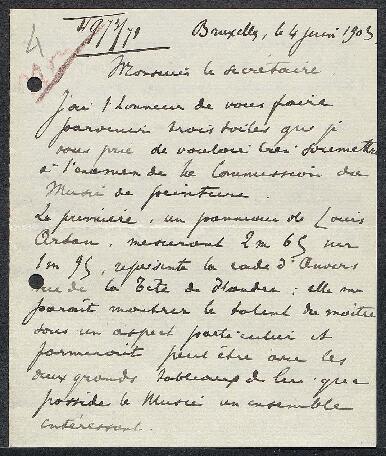 4
Bruxelles, le 4 juin 1903
Monsieur le secrétaire
J'ai l'honneur de vous faire
parvenir trois toiles que je
vous prie de vouloir bien soumettre
à l'examen de la Commission du
Musée de peinture.
La première, un panneau de Louis
Artan, mesurant 2 m 65 sur
1 m 95, représente la rade d'Anvers
vue de la Tête de Flandre ; elle me
paraît montrer le talent du maître
sous un aspect particulier et
formerait peut être avec les
deux grands tableaux de lui que
possède le Musée un ensemble
intéressant.